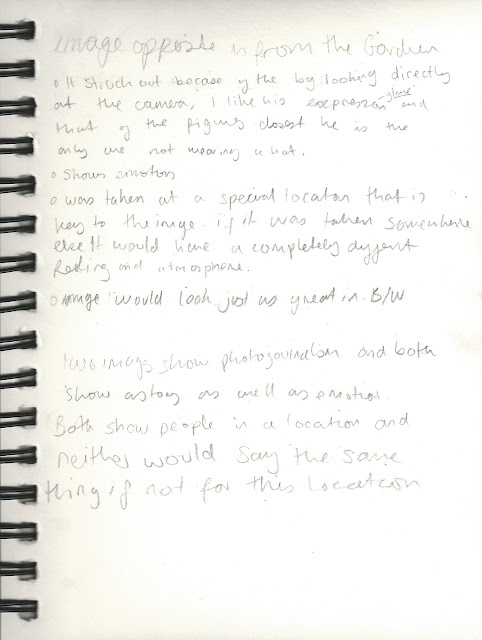 image opposite is from the Gardien
o It stuck out becase of the boy looking directly
at the camera, I like his expression glare and
that of the figures closest he is the
only one not wearing a hat.
o Shows emotion
o was taken at a special location that is
key to the image. if it was taken somewhere
else it would have a completely diffent
feeling and atmosphere.
o image would look just as great in B/W
Two images show photojournalism and both
show a story as well as emotion.
Both show people in a location and
neither would say the same
thing if not for this location